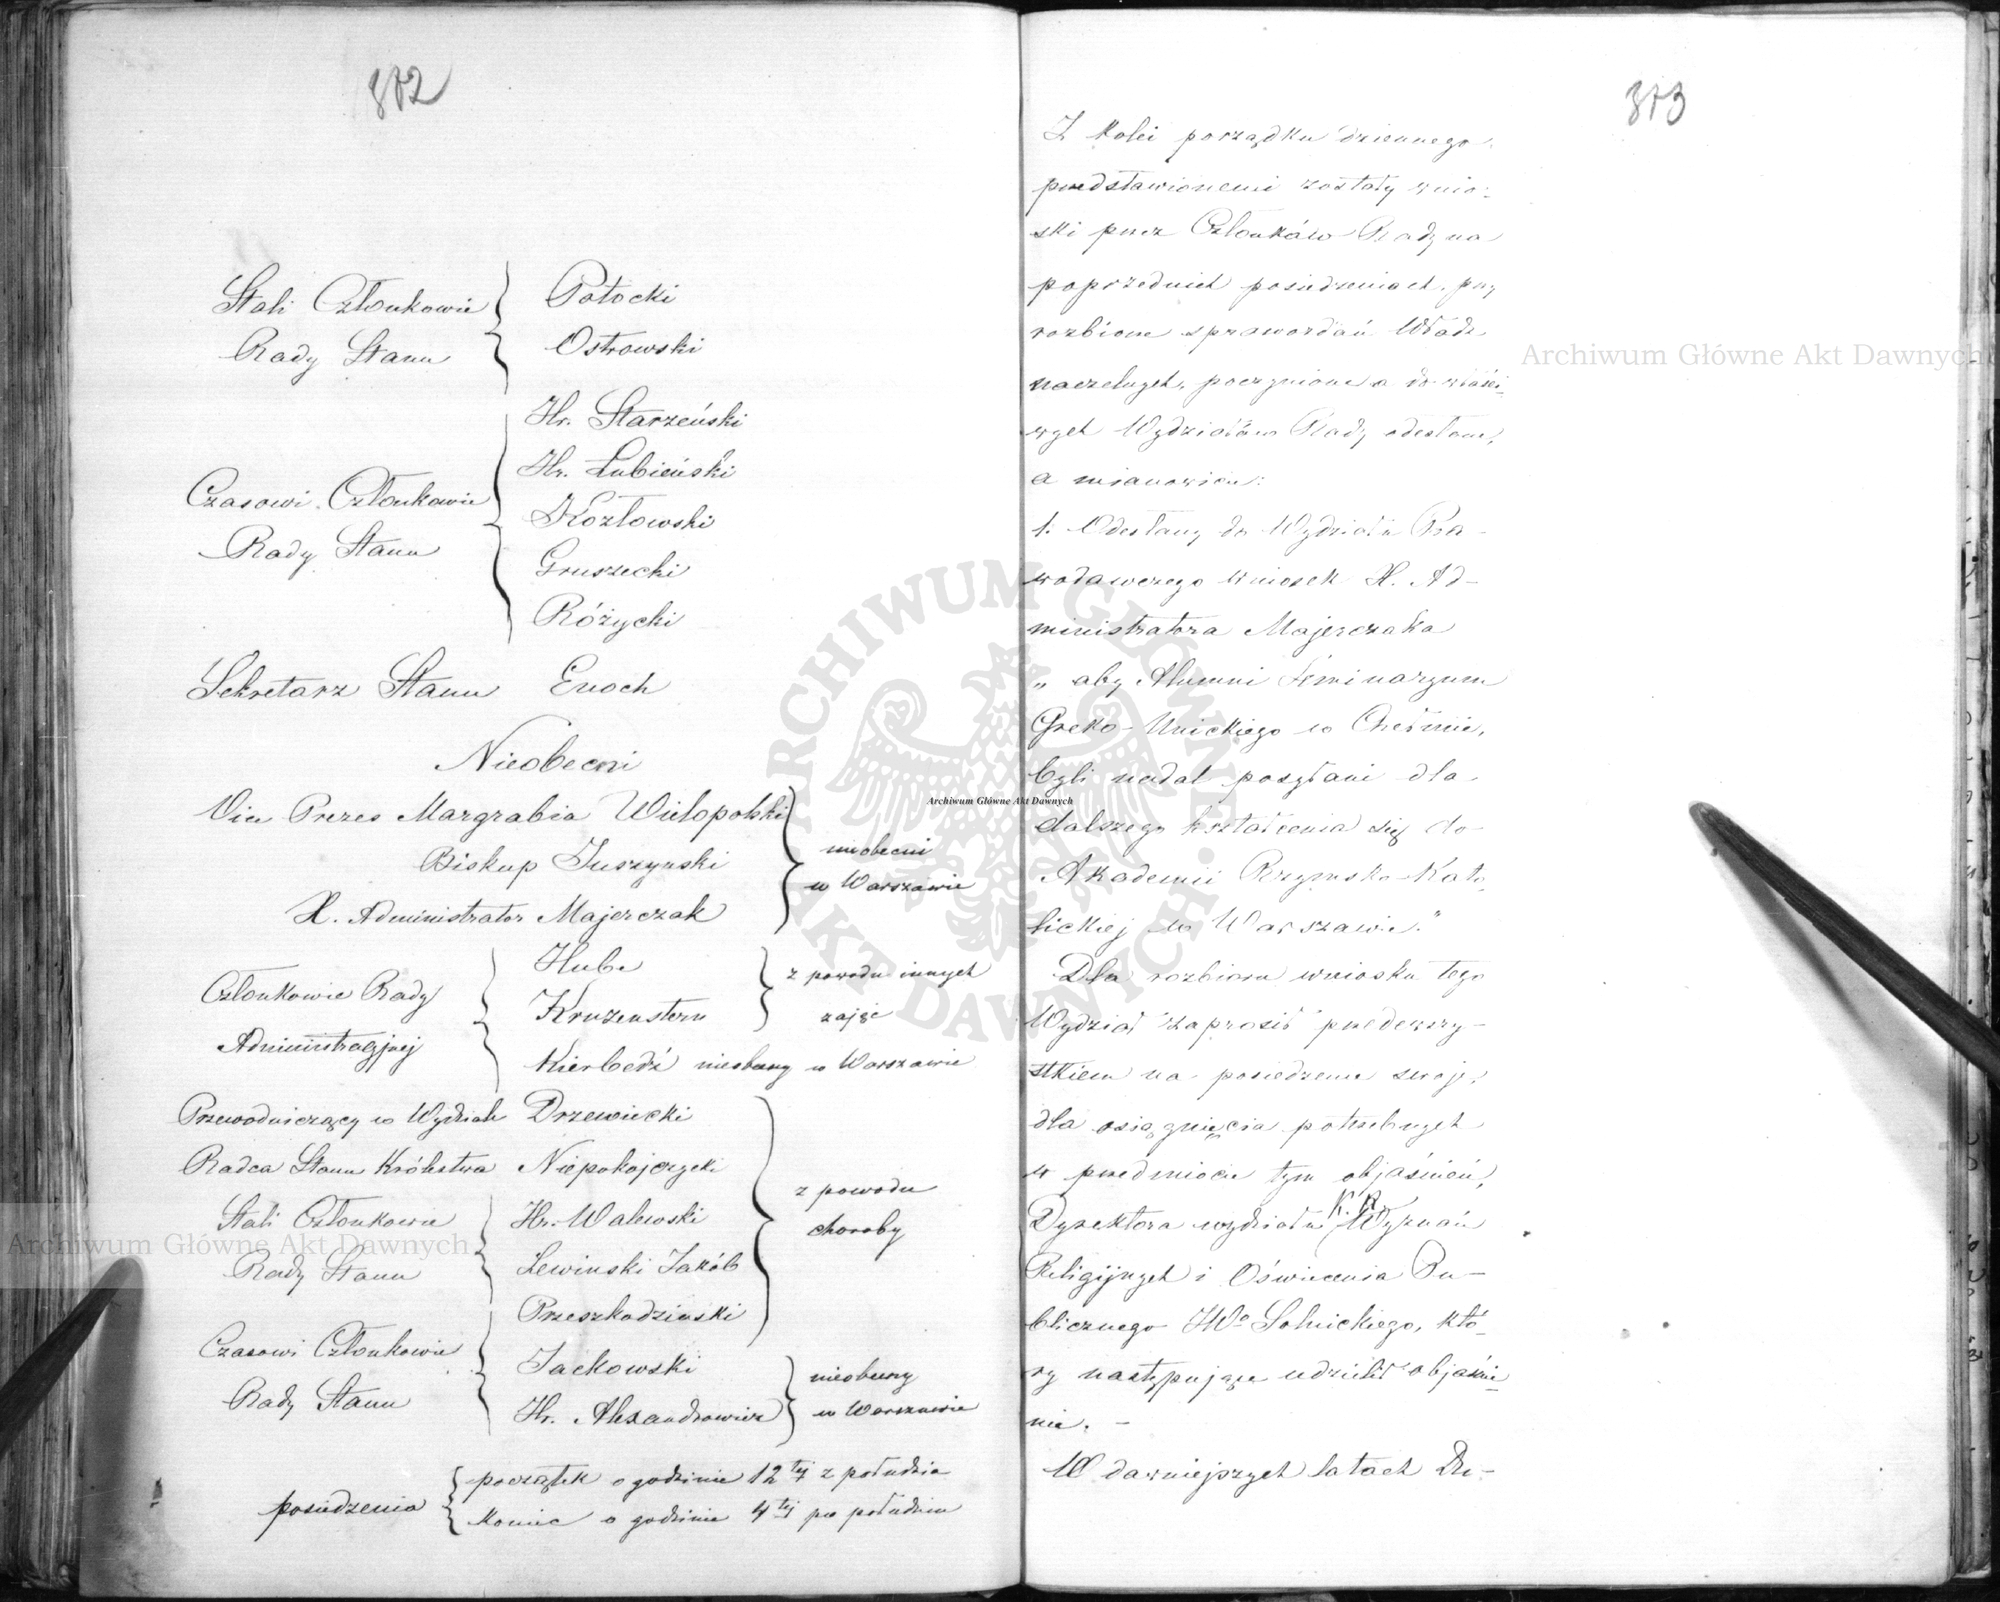 872
Stali Członkowie
Rady Stanu
Potocki
Ostrowski
Czasowi Członkowie
Rady Stanu
Hr. Starzeński
Hr. Łubieński
Kozłowski
Gruszecki
Różycki
Sekretarz Stanu Enoch
Nieobecni
Vice Prezes Margrabia Wielopolski
Biskup Juszyński
X. Administrator Majerczak
nieobecni
w Warszawie
Członkowie Rady
Administracyjnej
Hube
Kruzenstern
z powodu innych
zajęć
Kierbedź nieobecny w Warszawie
Przewodniczący w Wydziale Drzewiecki
Radca Stanu Królestwa Niepokojczycki
Stali Członkowie
Rady Stanu
Hr. Walewski
Lewinski Jakób
Przeszkodzinski
z powodu
choroby
Czasowi Członkowie
Rady Stanu
Jackowski
Hr. Alexandrowicz
nieobecny
w Warszawie
posiedzenia
początek o godzinie 12tej z południa
koniec o godzinie 4tej po południu
873
Z kolei porządku dziennego
przedstawionemi zostały wnio-
ski przez Członków Rady na
poprzednich posiedzeniach, przy
rozbiorze sprawozdań Władz
naczelnych, poczynione a do właści-
wych Wydziałów Rady odesłane,
a mianowicie:
1. Odesłany do Wydziału Pra-
wodawczego wniosek X. Ad-
ministratora Majerczaka
„ aby Alumni Seminaryum
Greko-Unickiego w Chełmie,
byli nadal posyłani dla
dalszego kształcenia się do
Akademii Rzymsko-Kato-
lickiej w Warszawie."
Dla rozbioru wniosku tego
Wydział zaprosił przedewszy-
stkiem na posiedzenie swoje,
dla osiągnięcia potrzebnych
w przedmiocie tym objaśnień,
Dyrektora wydziału K. R. Wyznań
Religijnych i Oświecenia Pu-
blicznego JWo Solnickiego, któ-
ry następujące udzielił objaśnie-
nie. -
W dawniejszych latach Du-
Archiwum Główne Akt Dawnych
Archiwum Główne Akt Dawnych
Archiwum Główne Akt Dawnych
ARCHIWUM GŁÓWNE AKT DAWNYCH